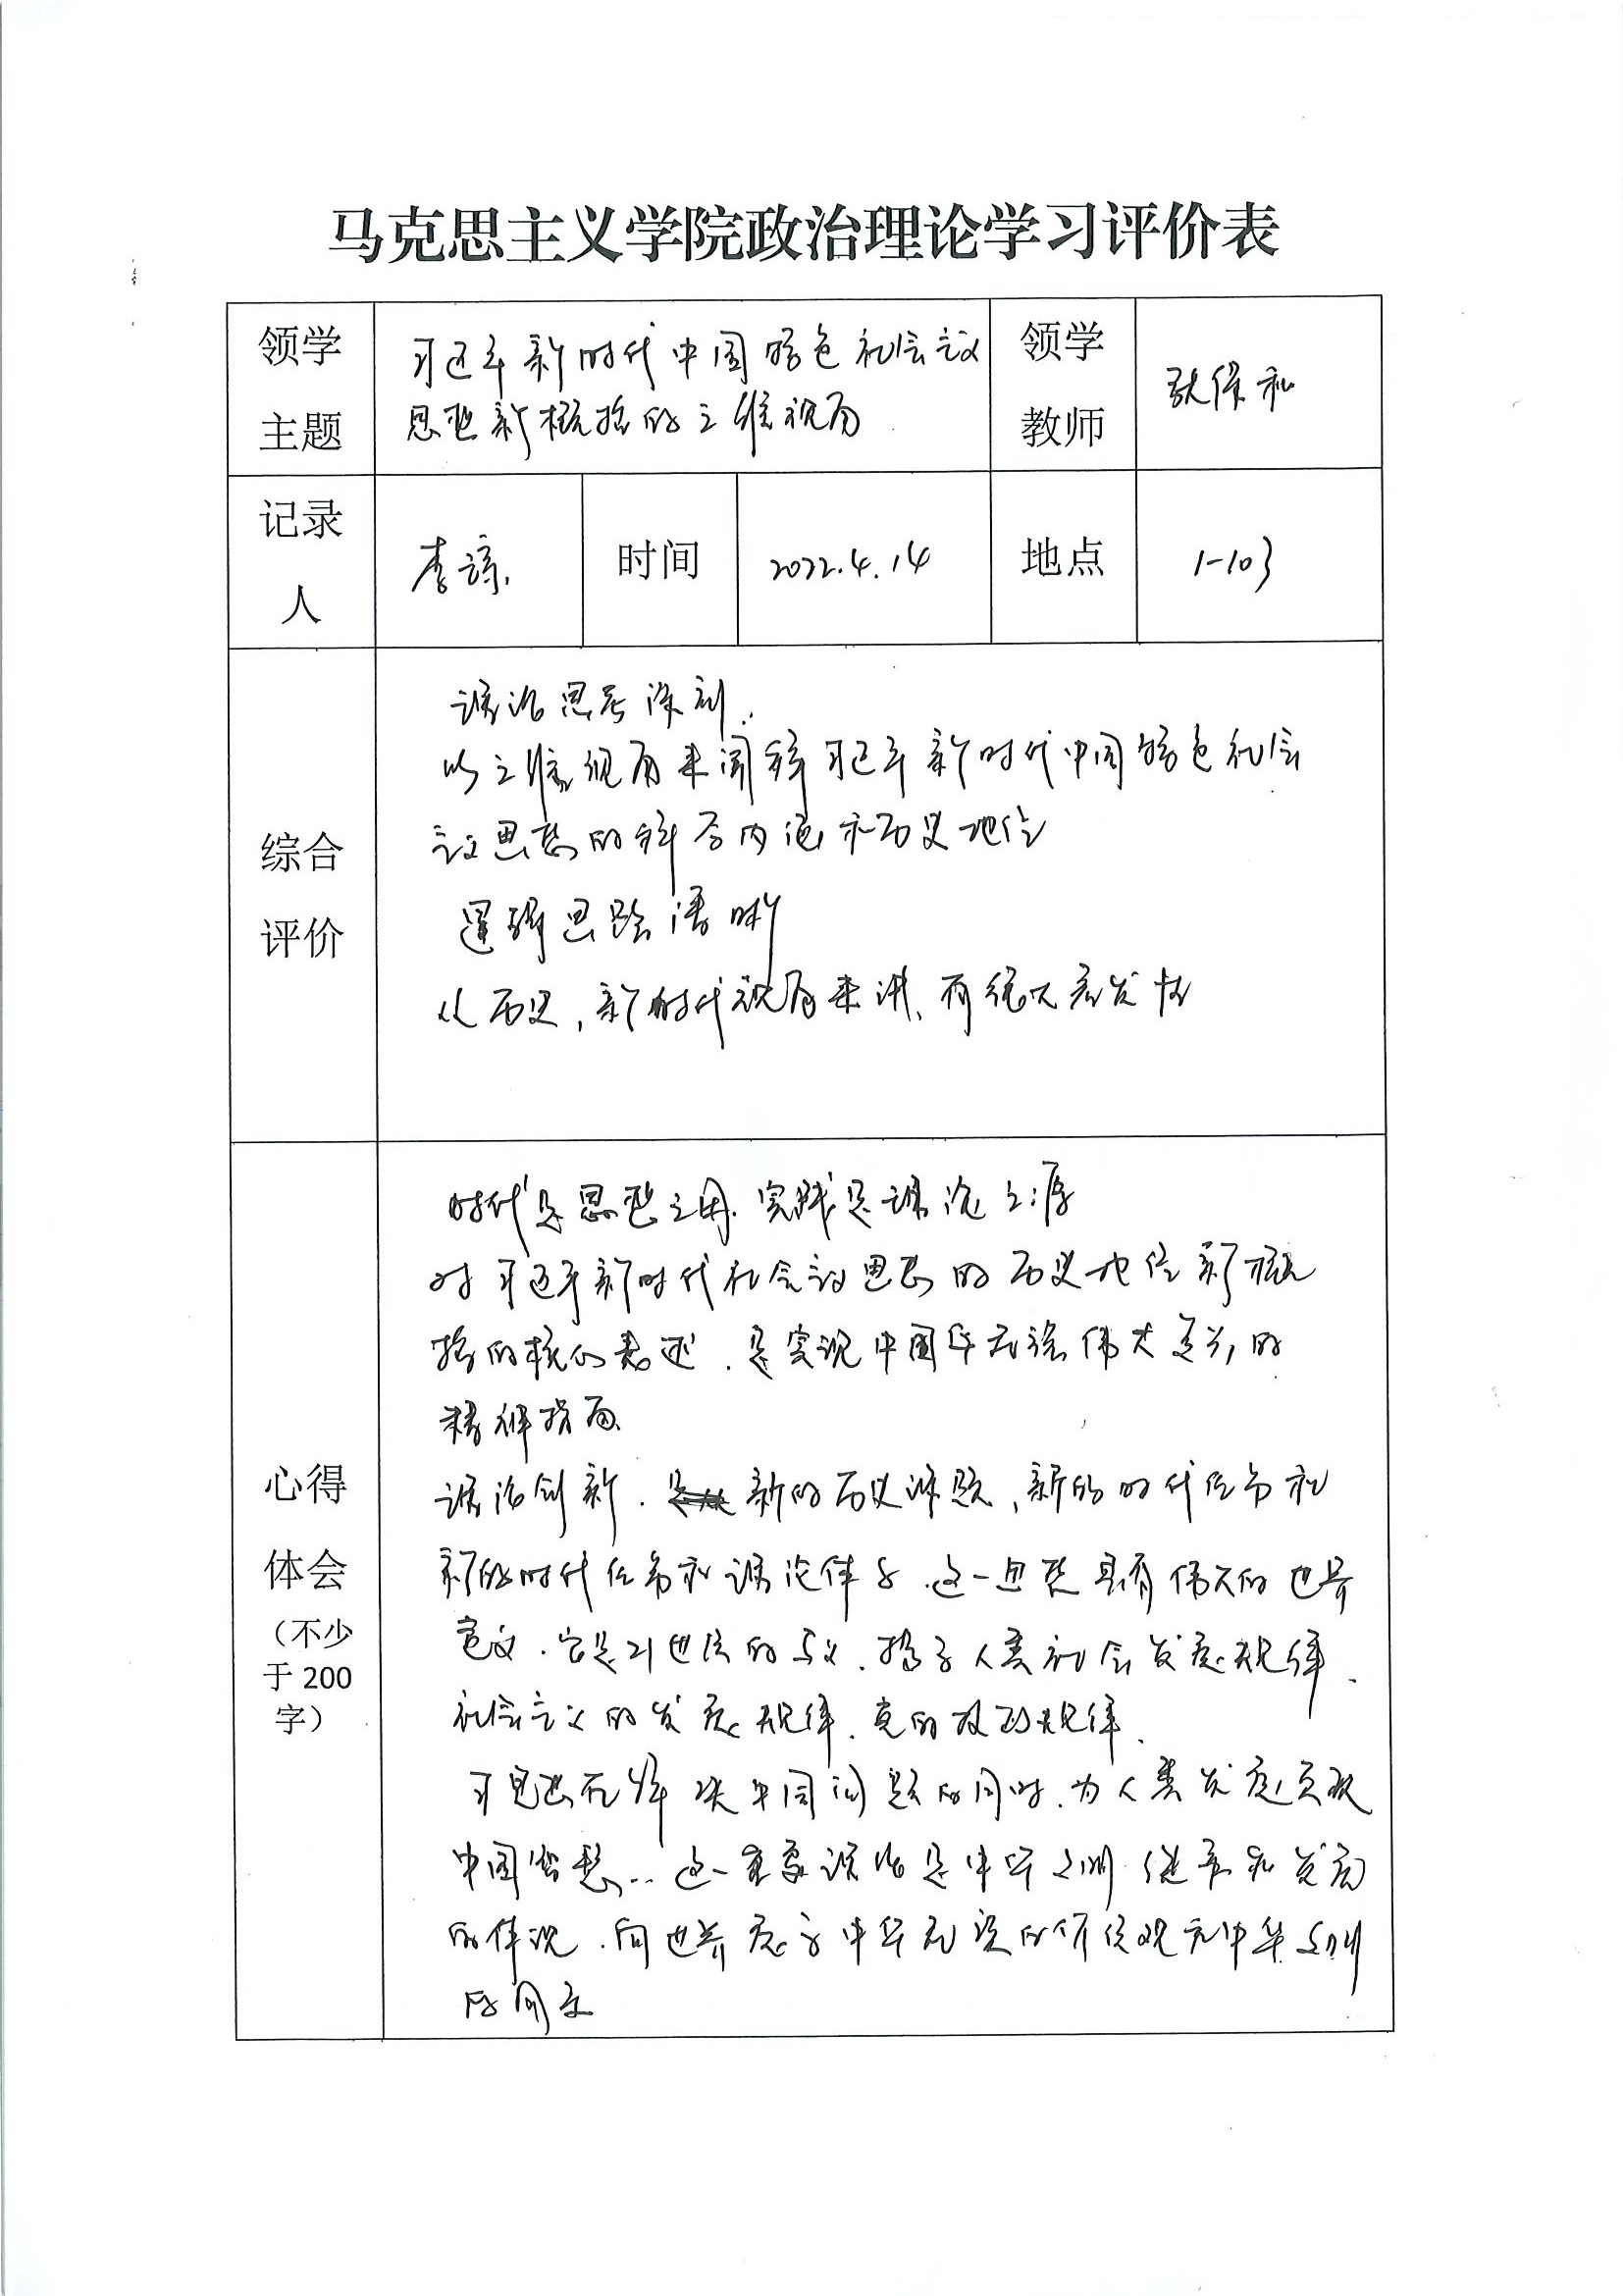 马克思主义学院政治理论学习评价表
领学
主题
习近平新时代中国特色社会主义
思想新概括的三维视角
领学
教师
保和
记录
人
李谅
时间
2022.4.14
地点
1-103
综合
评价
理论思考深刻.
以三维视角来阐释习近平新时代中国特色社会
主义思想的科学内涵和历史地位
逻辑思路清晰
从历史,新时代视角来讲,有很大启发性
心得
体会
(不少
于 200
字)
时代是思想之母.实践是理论之源
对习近平新时代社会主义思想的历史地位新概
括的核心表述.是实现中国华民族伟大复兴的
精神指南
理论创新.新的历史课题,新的时代任务和
新的时代任务和理论体系.这一思想具有伟大的世界
意义.它是21世纪的马义.揭示人类社会发展规律、
社会主义的发展规律、党的执政规律、
习思想在解决中国问题的同时.为人类发展贡献
中国智慧..这一重要理论是中华文明继承和发展
的体现.向世界展示中华民族的价值观和中华文明
的